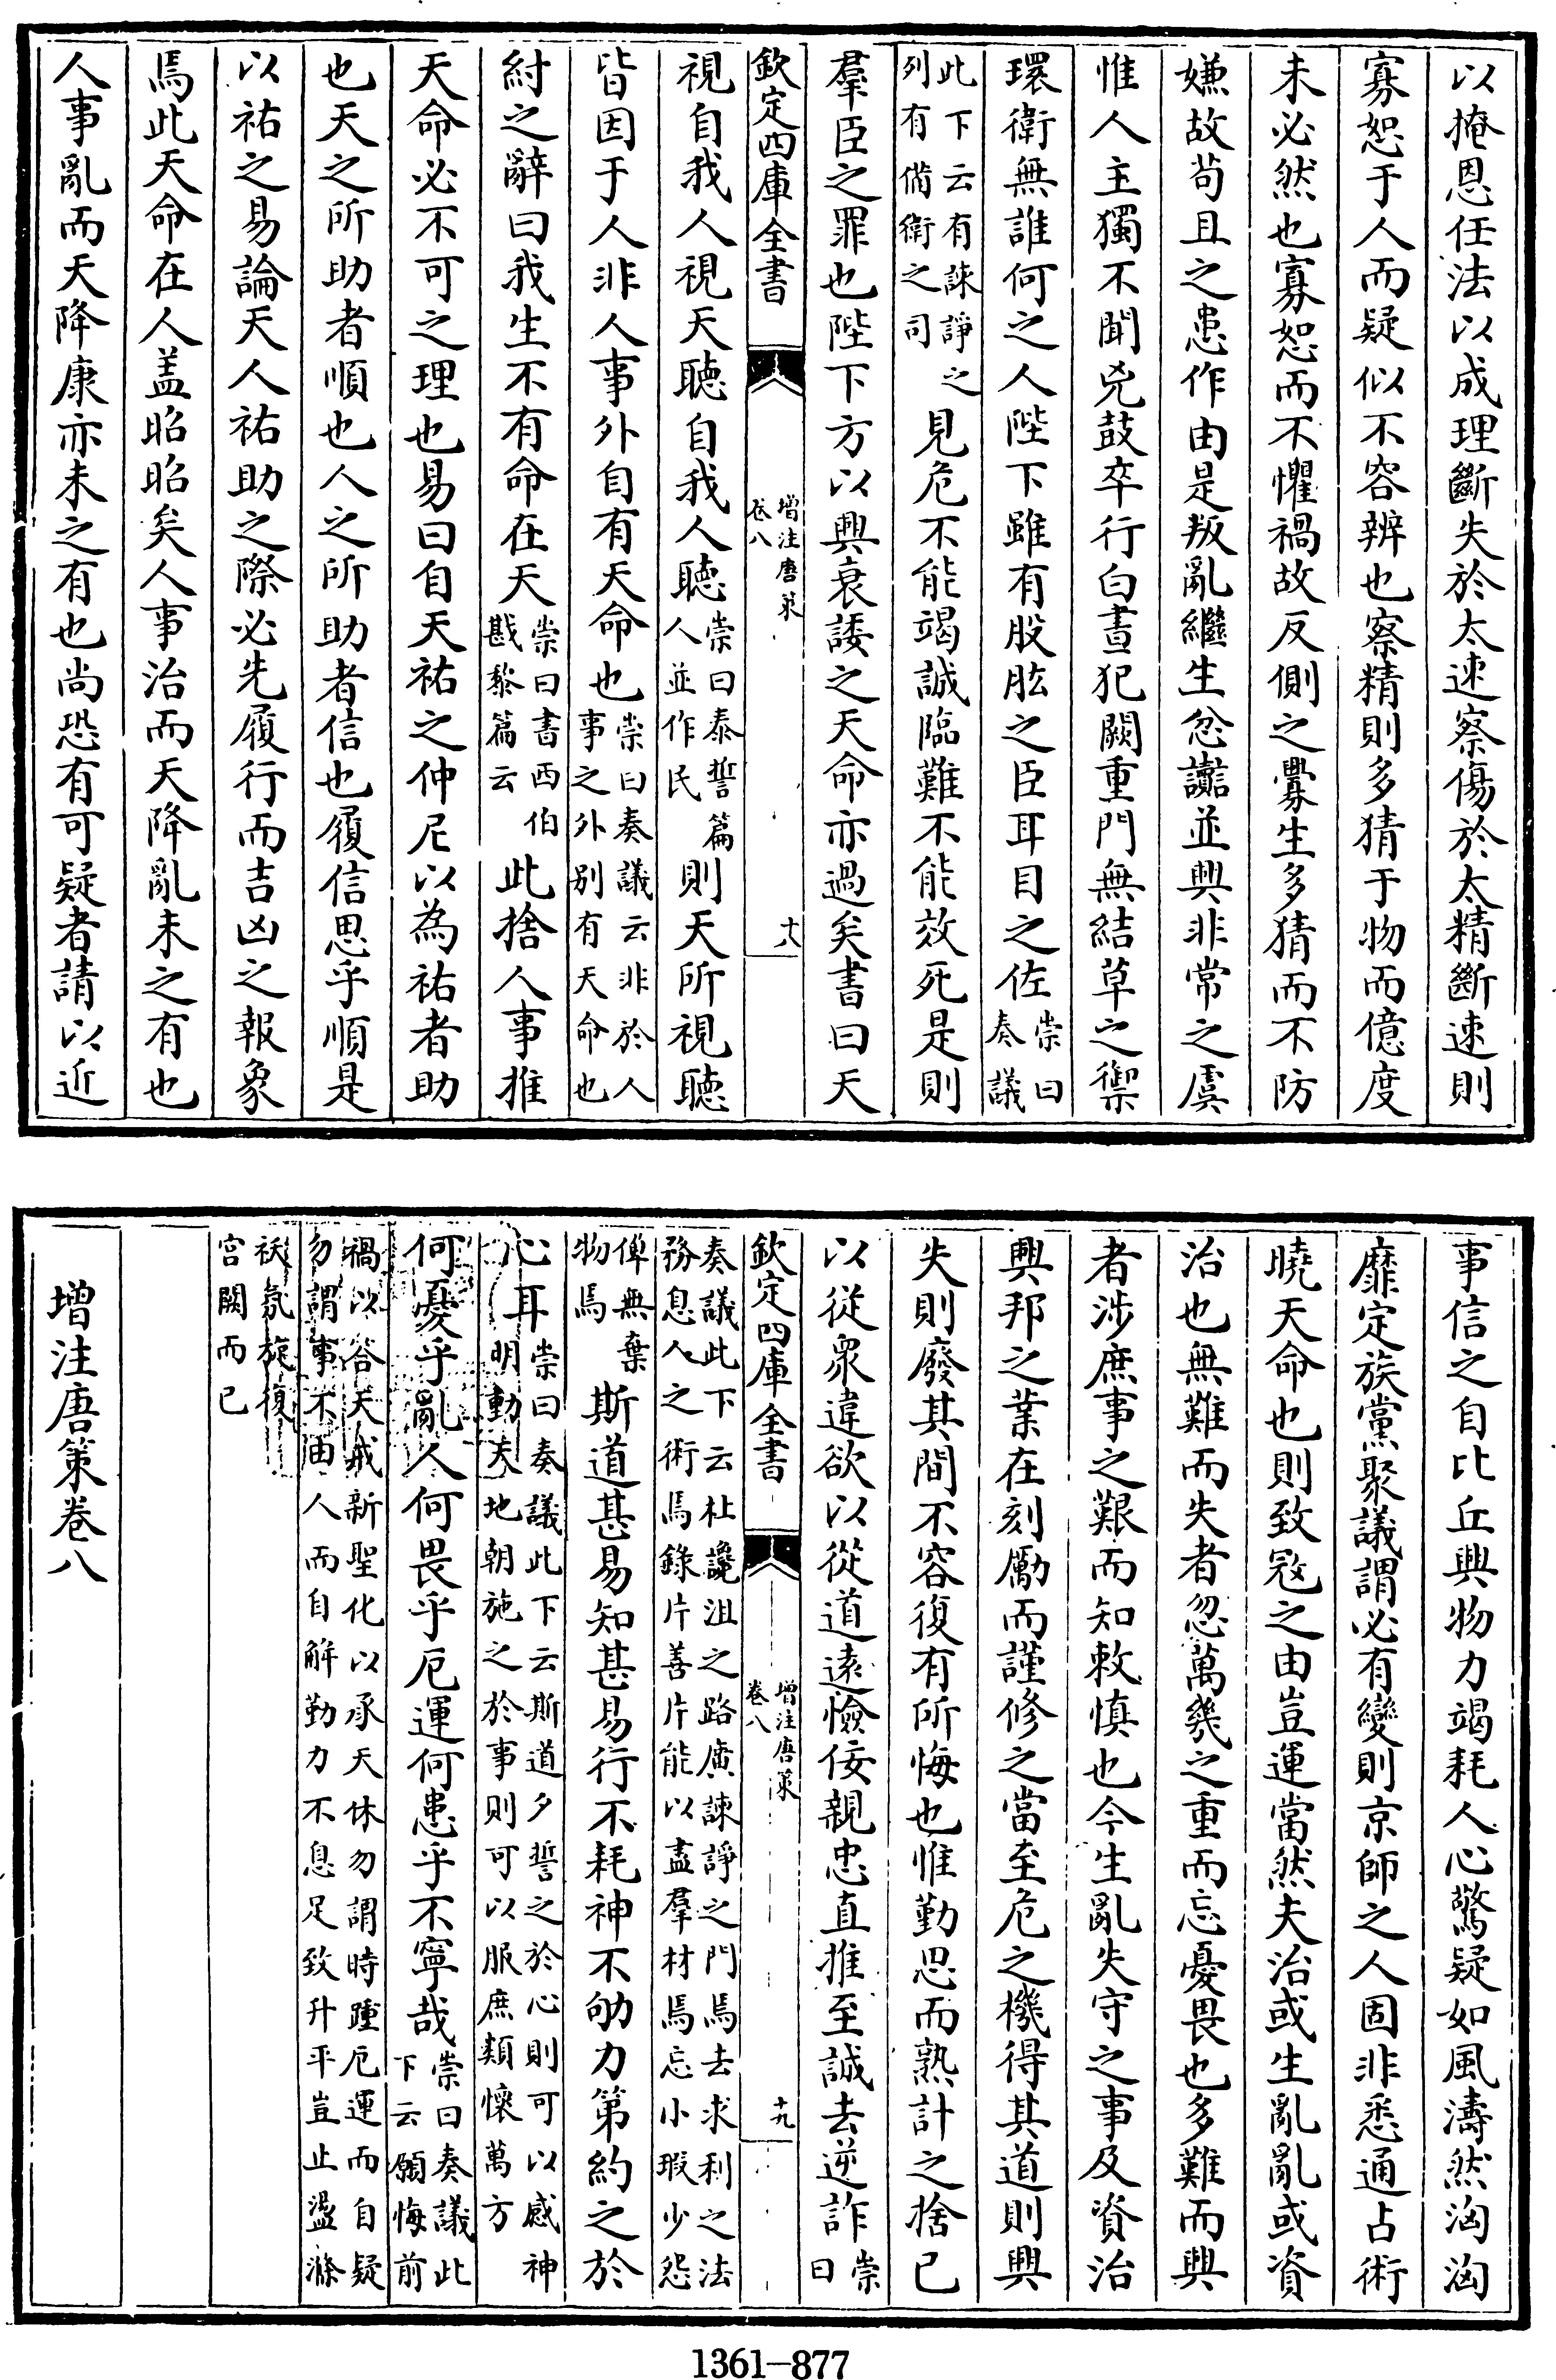 以掩恩任法以成理斷失於太速察傷於太精斷速則
寡恕于人而疑似不容辨也察精則多猜于物而億度
未必然也寡恕而不懼禍故反側之釁生多猜而不防
嫌故苟且之患作由是叛亂繼生忿讟並興非常之虞
惟人主獨不聞兇鼓卒行白晝犯闕重門無結草之禦
環衛無誰何之人陛下雖有股肱之臣耳目之佐崇曰奏議
此下云有諫諍之列有備衛之司見危不能竭誠臨難不能效死是則
羣臣之罪也陛下方以興衰諉之天命亦過矣書曰天
欽定四庫全書 增注唐策 卷八 十八
視自我人視天聽自我人聽崇曰泰誓篇人並作民則天所視聽
皆因于人非人事外自有天命也崇曰奏議云非於人事之外别有天命也
紂之辭曰我生不有命在天崇曰書西伯戡黎篇云此捨人事推
天命必不可之理也易曰自天祐之仲尼以為祐者助
也天之所助者順也人之所助者信也履信思乎順是
以祐之易論天人祐助之際必先履行而吉凶之報象
焉此天命在人盖昭昭矣人事治而天降亂未之有也
人事亂而天降康亦未之有也尚恐有可疑者請以近
事信之自比丘興物力竭耗人心驚疑如風濤然洶洶
靡定族黨聚議謂必有變則京師之人固非悉通占術
曉天命也則致冦之由豈運當然夫治或生亂亂或資
治也無難而失者忽萬幾之重而忘憂畏也多難而興
者涉庶事之艱而知敕慎也今生亂失守之事及資治
興邦之業在刻勵而謹修之當至危之機得其道則興
失則廢其間不容復有所悔也惟勤思而熟計之捨已
以從衆違欲以從道遠憸佞親忠直推至誠去逆詐崇曰
欽定四庫全書 增注唐策 卷八 十九
奏議此下云杜讒沮之路廣諫諍之門焉去求利之法務息人之術焉錄片善片能以盡羣材焉忘小瑕少怨
俾無棄物焉斯道甚易知甚易行不耗神不劬力第約之於
心耳崇曰奏議此下云斯道夕誓之於心則可以感神明動天地朝施之於事則可以服庶類懷萬方
何憂乎亂人何畏乎厄運何患乎不寧哉崇曰奏議此下云願悔前
禍以答天戒新聖化以承天休勿謂時踵厄運而自疑勿謂事不由人而自解勤力不息足致升平豈止盪滌
祅氛旋復宫闕而已
增注唐策卷八
1361—877